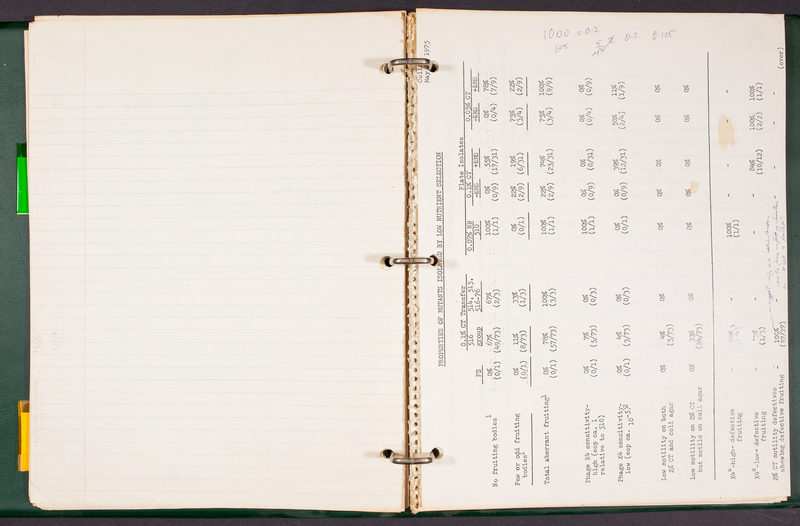 1000 = 0.2
0.2 0.125
1975
PROPERTIES OF MUTANTS ISOLATED BY LOW NUTRIENT SELECTION
Plate Isolates
0.1% CT Transfer 0.07% NB 0.1% CT 0.05% CT
FB 516 group 514, 515, 516-76 510 -EMS +EMS -EMS +EMS
No fruiting bodies 1 0% 67% 67% 100% 0% 55% 0% 78%
(0/1) (49/73) (2/3) (1/1) (0/9) (17/31) (0/4) (7/9)
Few or odd fruiting 0% 11% 33% 0% 22% 19% 75% 22%
bodies1 (0/1) (8/73) (1/3) (0/1) (2/9) (6/31) (3/4) (2/9)
Total aberrant fruiting1 0% 78% 100% 100% 22% 74% 75% 100%
(0/1) (57/73) (3/3) (1/1) (2/9) (23/31) (3/4) (9/9)
Phage X4 sensitivity- 0% 7% 0% 100% 0% 0% 0% 0%
high (eop ca. 1 (0/1) (5/73) (0/3) (1/1) (0/9) (0/31) (0/4) (0/9)
relative to 510)
Phage X4 sensitivity- 0% 4% 0% 0% 0% 39% 50% 11%
low (eop ca. 10-5)2 (0/1) (3/73) (0/3) (0/1) (0/9) (12/31) (2/4) (1/9)
Low motility on both 0% 4% 0% 0% 0% 0% 0% 0%
2% CT and coli agar (3/73)
Low motility on 2% CT 0% 33% 0% 0% 0% 0% 0% 0%
but motile on coli agar (24/73)
X4s-high- defective - - 100% - - - -
fruiting (1/1)
X4s-low- defective - - - - 84% 100% 100%
fruiting (1/3) (10/12) (2/2) (1/1)
2% CT motility defectives - 100% - -
showing defective fruiting (27/27)
(over)